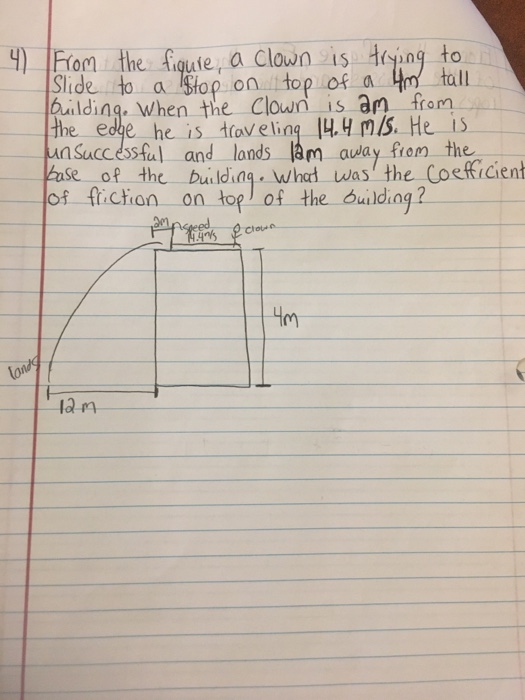 4) From the figure, a Clown is trying to
Slide to a Stop on top of a 4m tall
building. When the Clown is 2m from
the edge he is traveling 14.4 m/s. He is
unSuccessful and lands 12m away from the
base of the building. What was the Coefficient
of friction on top of the building?
2m speed clown
14.4m/s
4m
lands
12m